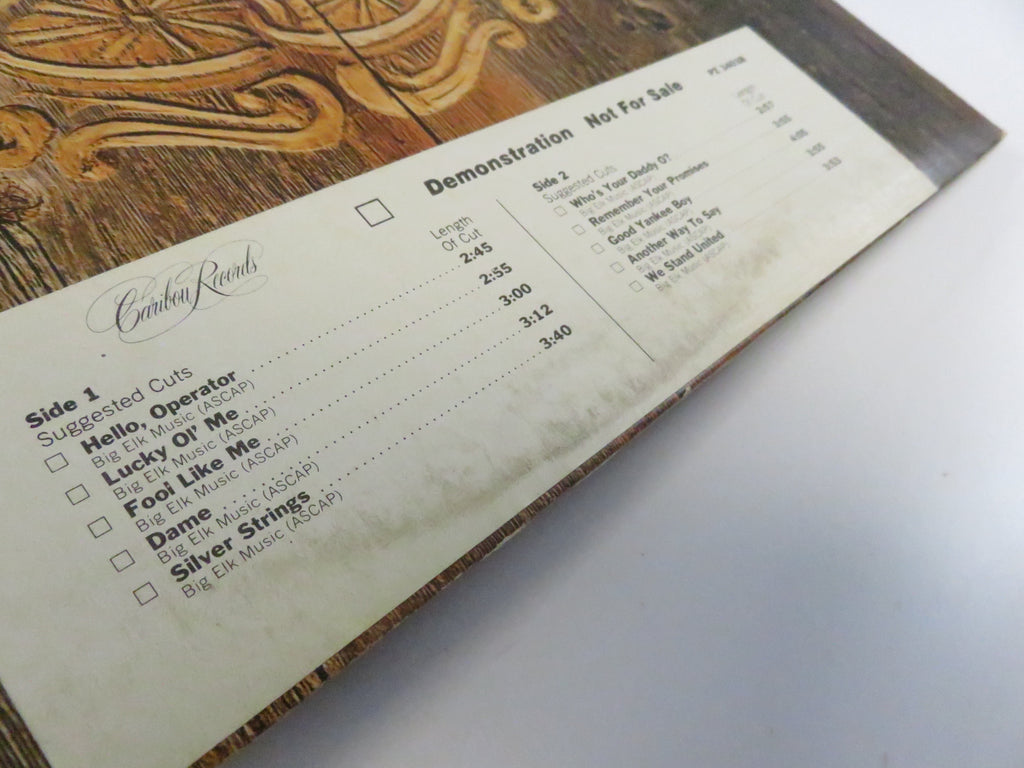 Caribou Records
Demonstration Not For Sale
Side 1
Suggested Cuts
Length
Of Cut
Hello, Operator 2:45
Big Elk Music (ASCAP)
Lucky Ol' Me 2:55
Big Elk Music (ASCAP)
Fool Like Me 3:00
Big Elk Music (ASCAP)
Dame 3:12
Big Elk Music (ASCAP)
Silver Strings 3:40
Big Elk Music (ASCAP)
Side 2
Suggested Cuts
Who's Your Daddy O?
Big Elk Music (ASCAP)
Remember Your Promises
Big Elk Music (ASCAP)
Good Yankee Boy
Big Elk Music (ASCAP)
Another Way To Say
Big Elk Music (ASCAP)
We Stand United
Big Elk Music (ASCAP)